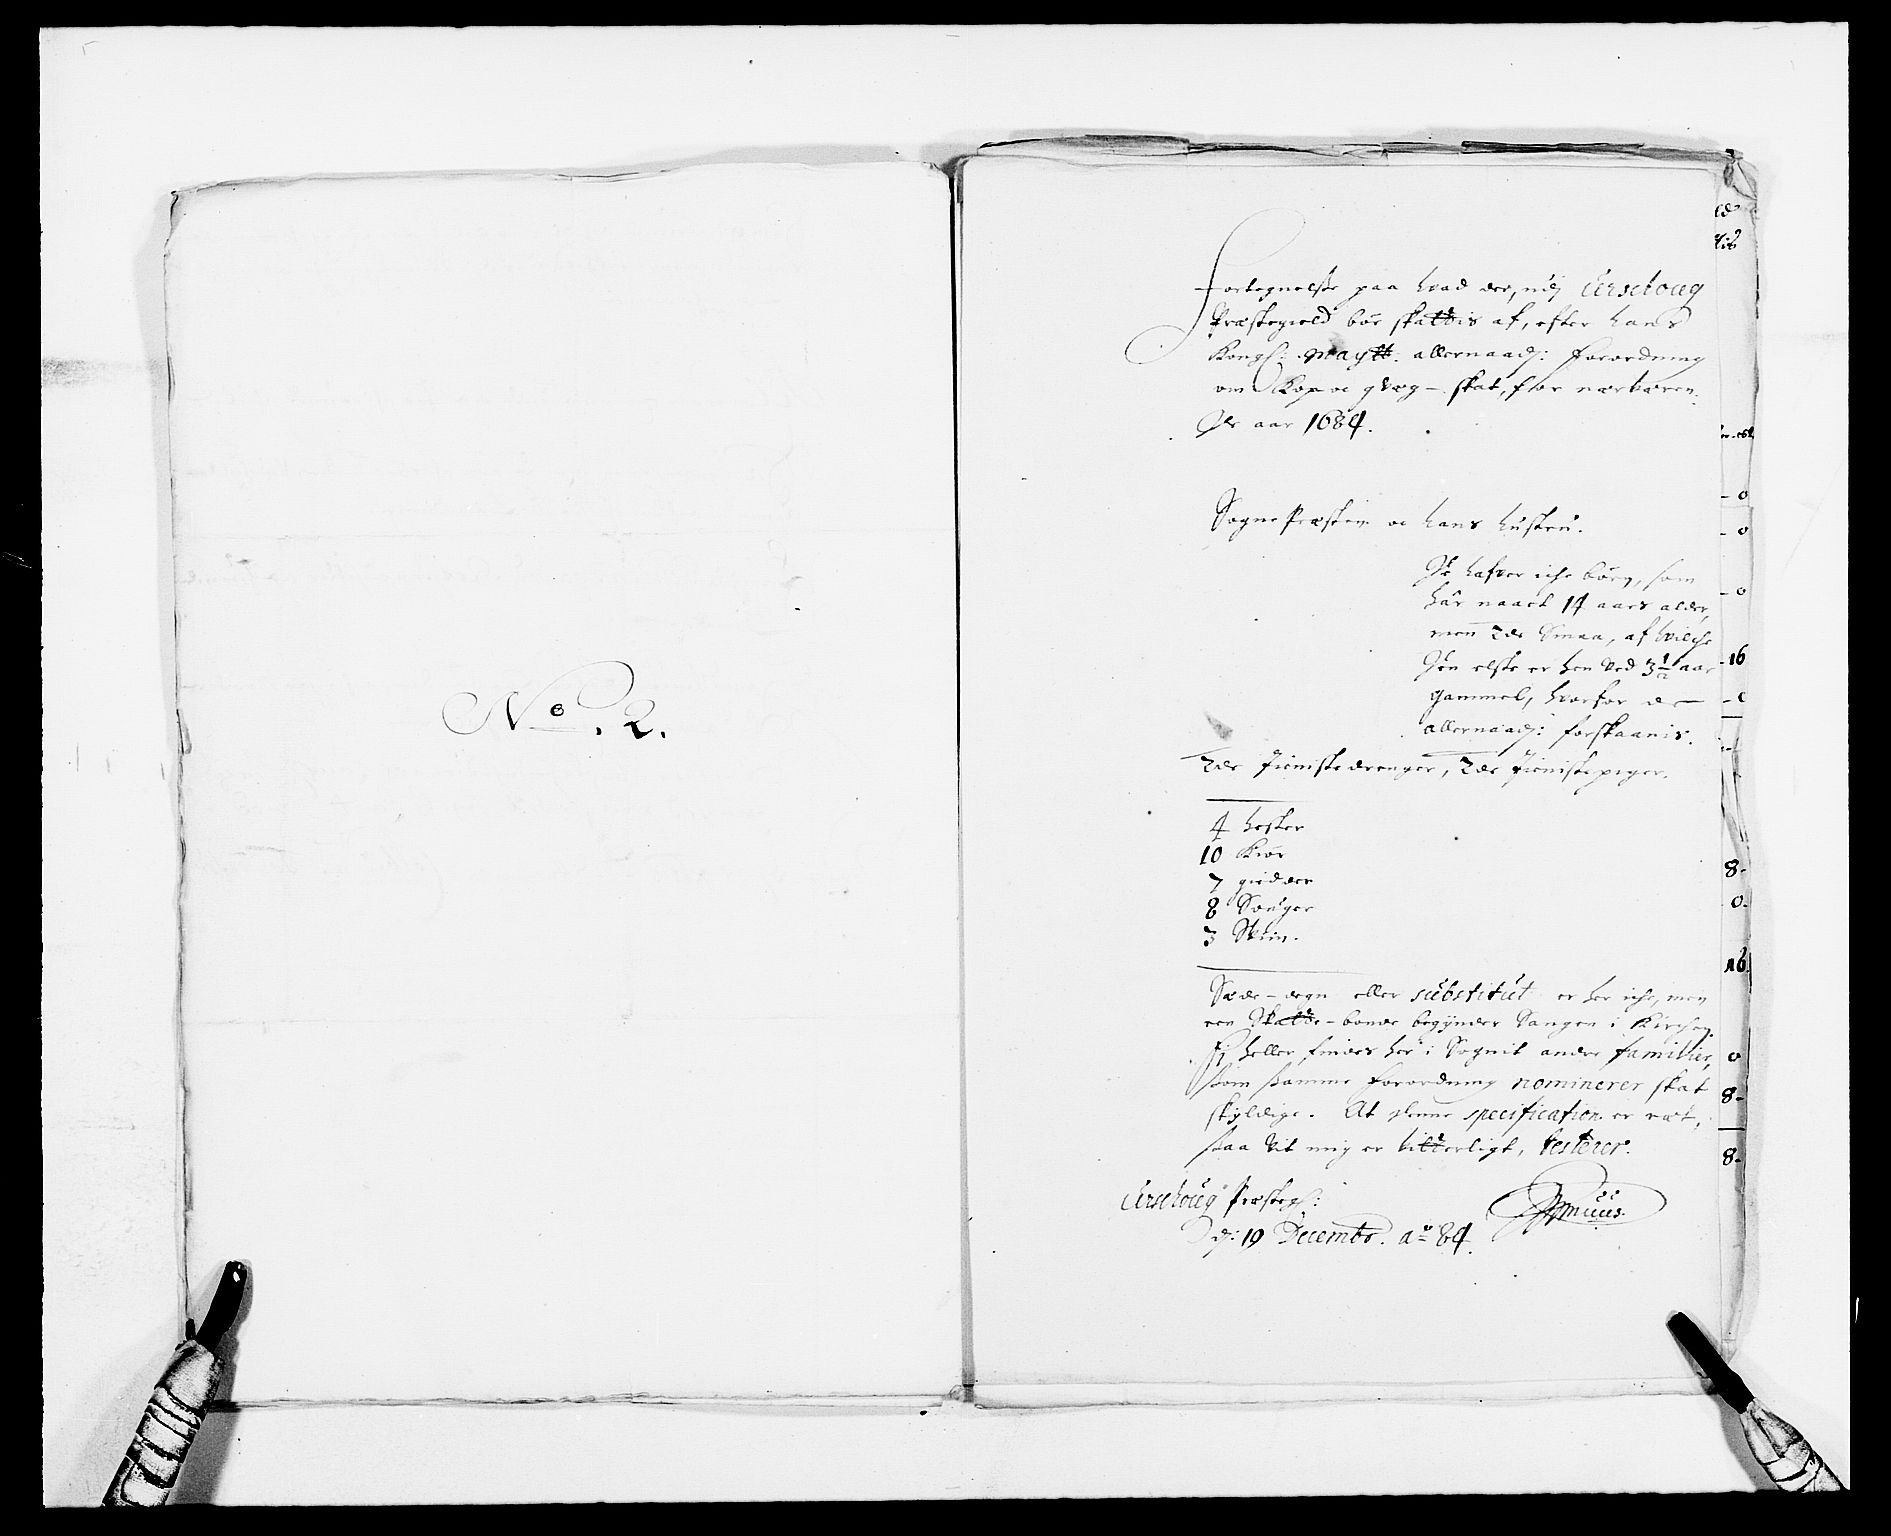 No. 2.
Fortegnelse paa hvad der, udj Urschoug
Præstegield bør skattis af, efter hans
Kongl: Maytt. allernaad: forordning
om Kop oc qvæg-skat, for nærværen-
de aar 1684.
Sogne Præsten oc hans hustru.
De hafver iche børn, som
har naaet 14 aars alder,
men 2de Smaa, af hvilche
den elste er hen ved 3½ aar
gammel, hvorfor de
allernaad: forskaanis.
2de Tieniste drenger, 2de Tieniste piger.
4 hester
10 Kiør
7 gieder
8 Sauger
3 Sviin.
Sæde-degn eller substitut er her iche, men
een Skatte-bonde begynder Sangen i Kirchen.
Ej heller findes her i Sognit andre familier,
som samme forordning nominerer skat
skyldige. At denne specification er ræt,
saa vit mig er vitterligt, testerer.
Urschoug Præsteg:
d: 19 Decembr. ao 84.
Muus.
16
8-
0-
16
0
8-
8-